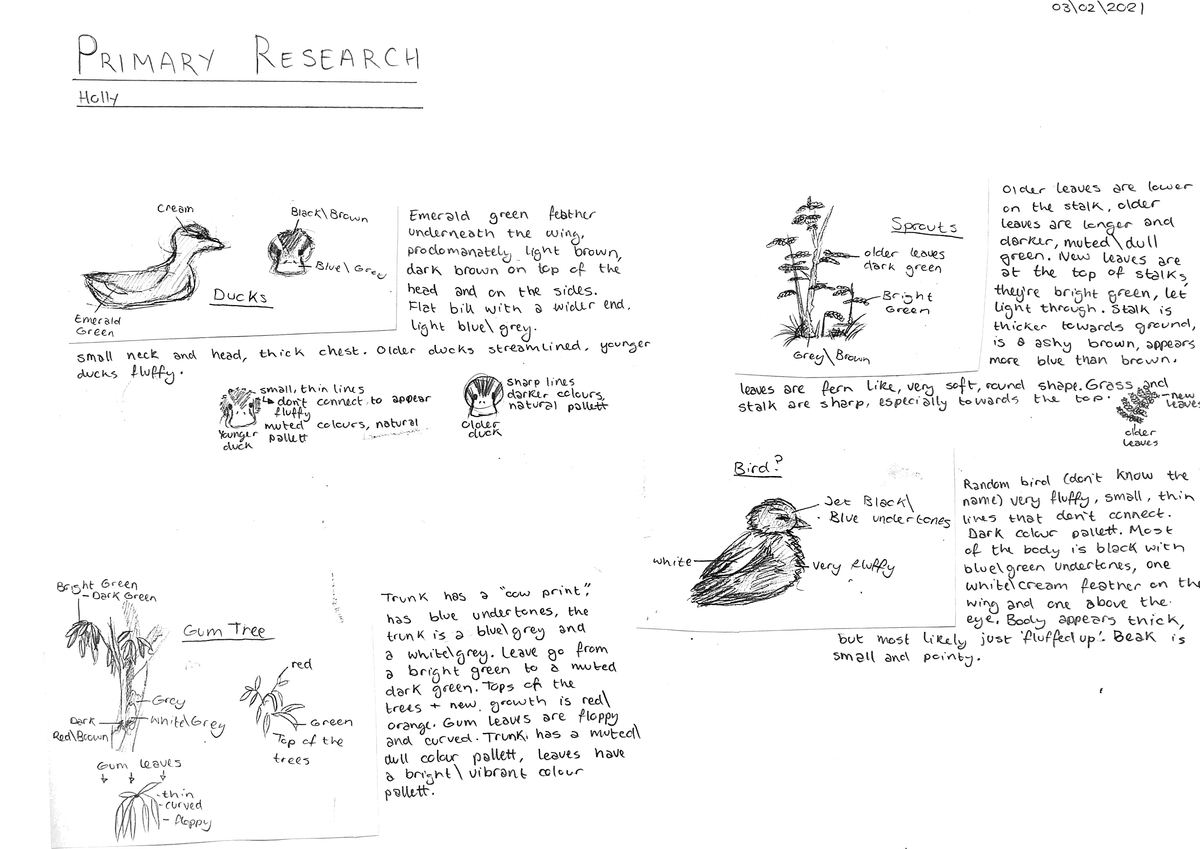 03\02\2021
PRIMARY RESEARCH
Holly
Cream
Black\Brown
Blue\Grey
Ducks
Emerald
Green
Emerald green feather
underneath the wing,
prodomanately light brown,
dark brown on top of the
head and on the sides.
Flat bill with a wider end,
light blue\grey.
small neck and head, thick chest. Older ducks streamlined, younger
ducks fluffy.
small, thin lines
don't connect to appear
fluffy
muted colours, natural
pallett
Younger
duck
sharp lines
darker colours,
natural pallett
Older
duck
Sprouts
older leaves
dark green
Bright
Green
Grey\Brown
Older leaves are lower
on the stalk, older
leaves are longer and
darker, muted\dull
green. New leaves are
at the top of stalks,
they're bright green, let
light through. Stalk is
thicker towards ground,
is a ashy brown, appears
more blue than brown.
leaves are fern like, very soft, round shape. Grass and
stalk are sharp, especially towards the top.
new
leaves
older
leaves
Bird?
Jet Black\
Blue undertones
white
very fluffy
Random bird (don't know the
name) very fluffy, small, thin
lines that don't connect.
Dark colour pallett. Most
of the body is black with
blue\green undertones, one
white\cream feather on the
wing and one above the
eye. Body appears thick,
but most likely just 'fluffed up'. Beak is
small and pointy.
Bright Green
- Dark Green
Gum Tree
red
Grey
White\Grey
Dark
Red\Brown
Green
Top of the
trees
Gum leaves
- thin
- curved
- floppy
Trunk has a "cow print",
has blue undertones, the
trunk is a blue\grey and
a white\grey. Leave go from
a bright green to a muted
dark green. Tops of the
trees + new growth is red\
orange. Gum leaves are floppy
and curved. Trunk has a muted\
dull colour pallett, leaves have
a bright\vibrant colour
pallett.